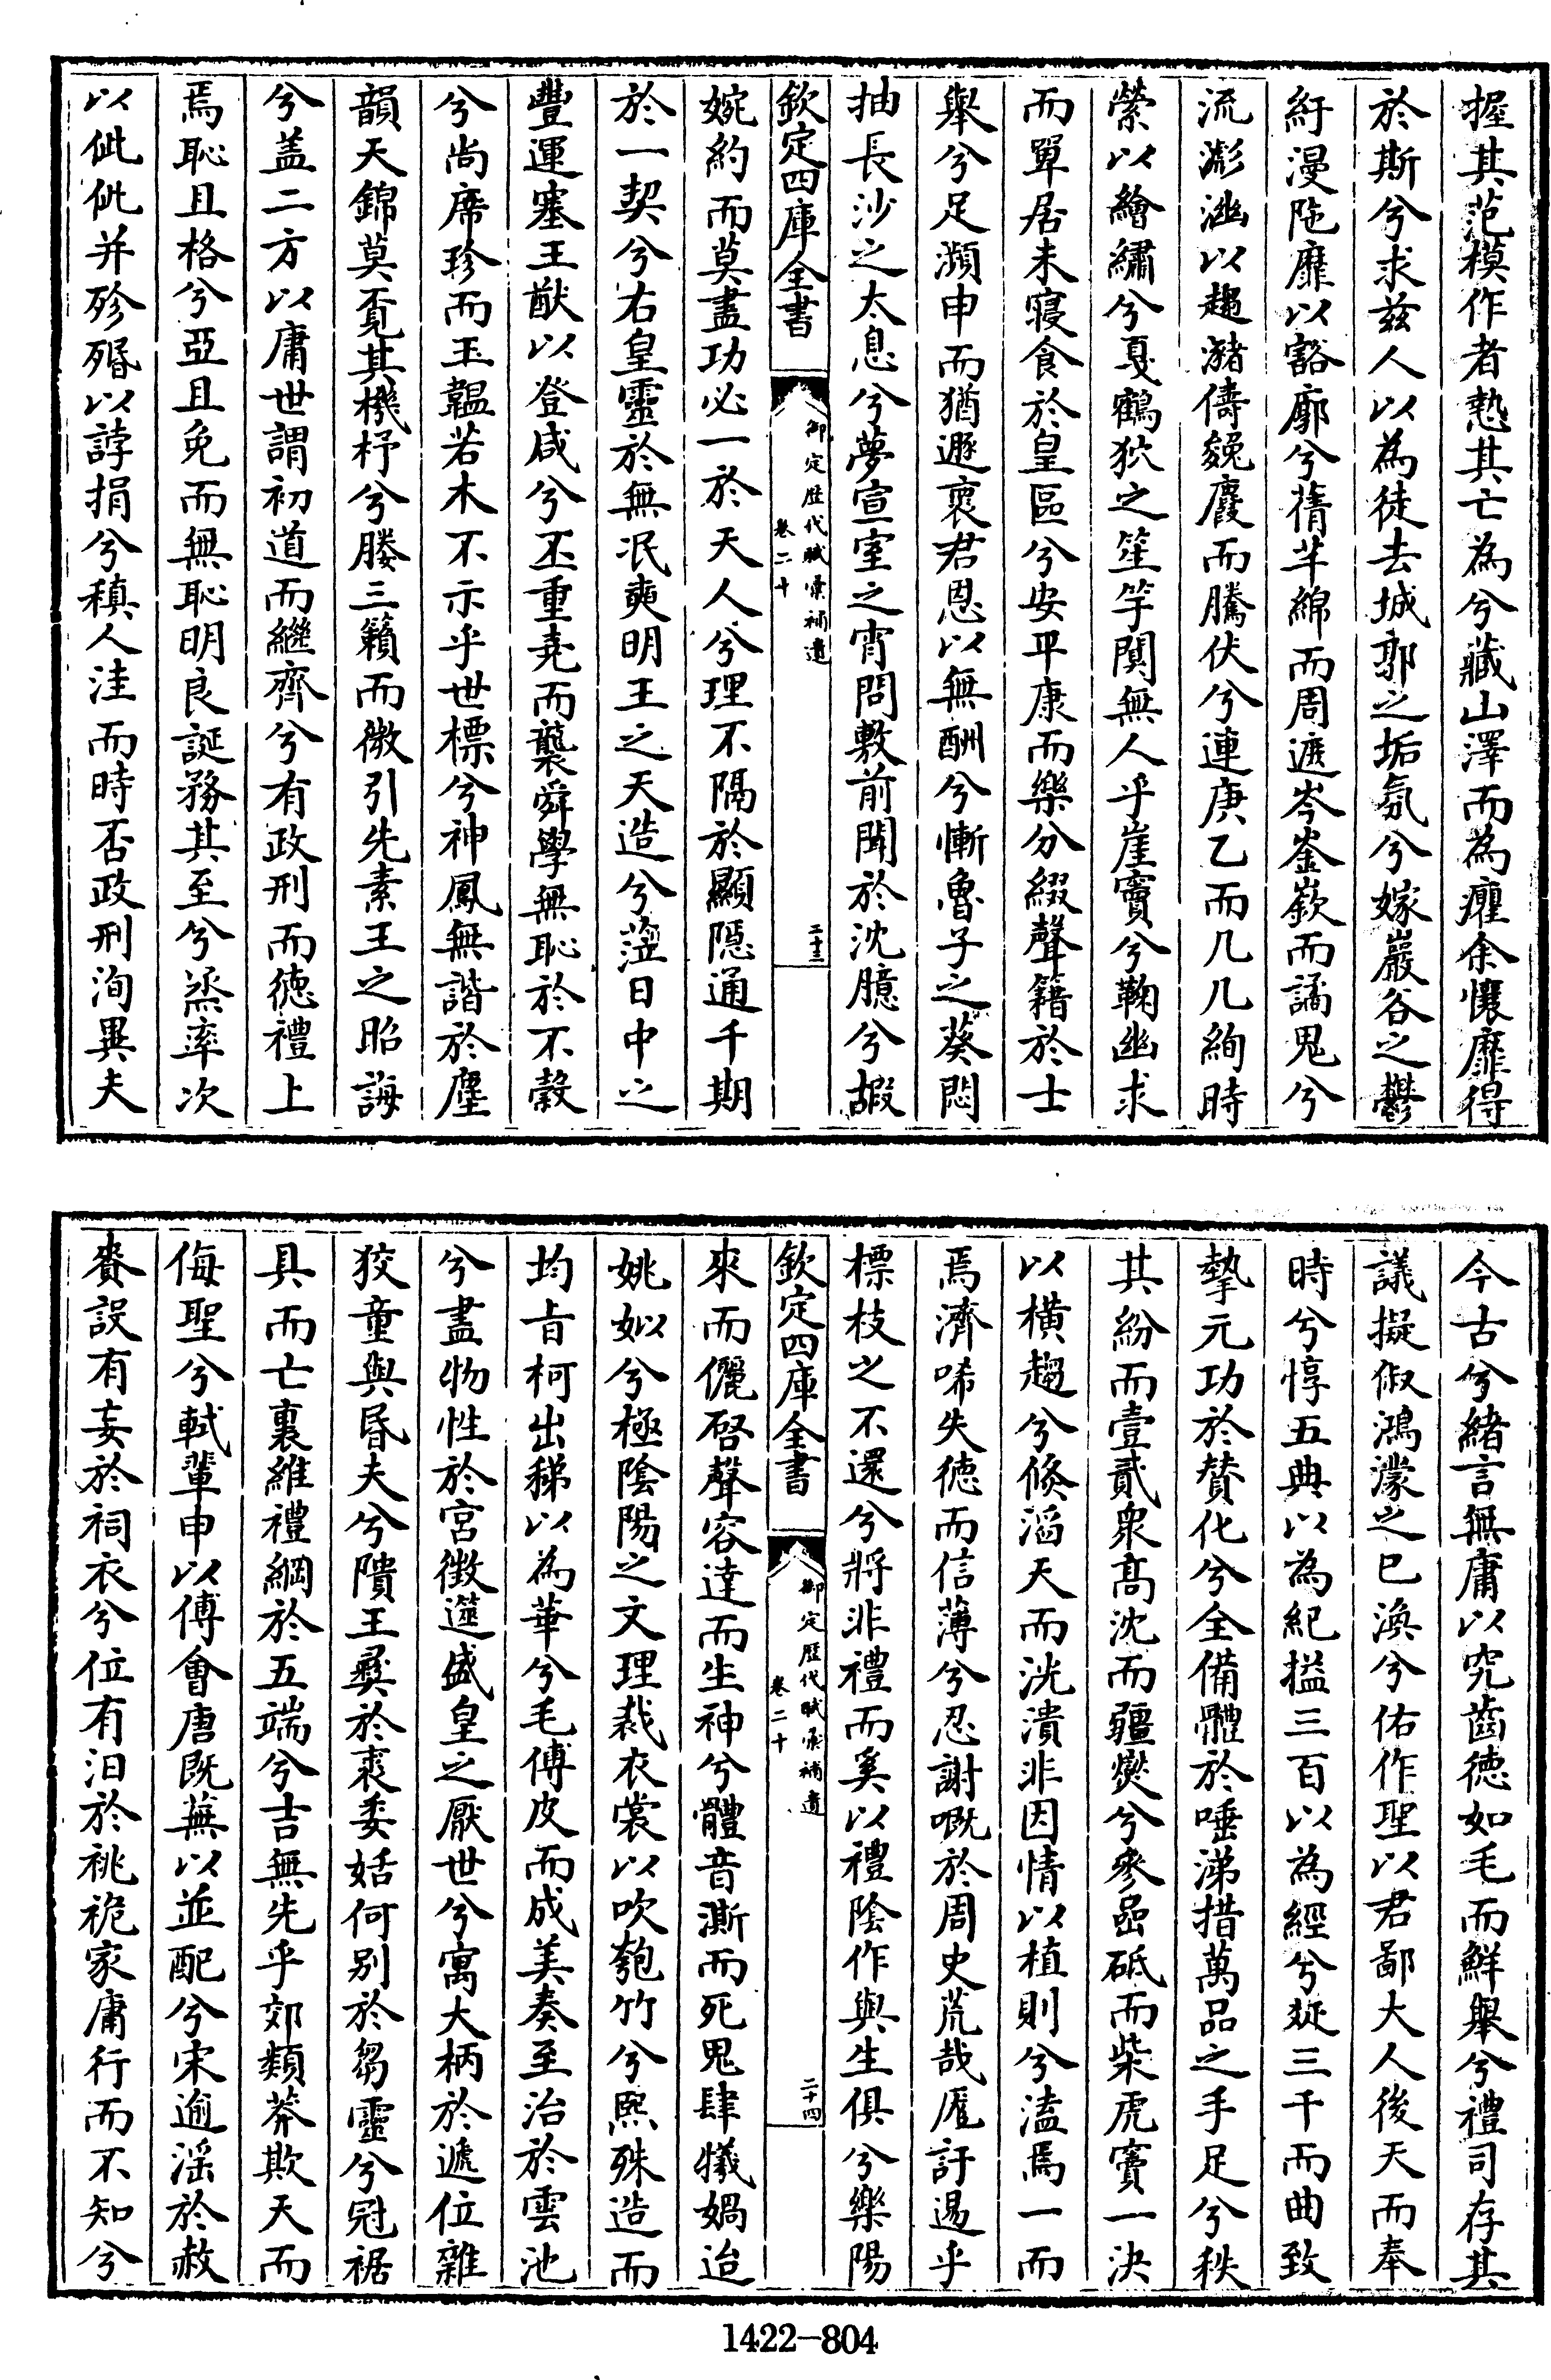 握其范模作者慙其亡為兮藏山澤而為癯余懷靡得
於斯兮求兹人以為徒去城郭之垢氛兮嫁巖谷之鬱
紆漫陁靡以豁廓兮蒨芊綿而周遮岑崟嶔而譎鬼兮
流澎湎以趨瀦儔麂麚而騰伏兮連庚乙而几几絢時
縈以繪繡兮戛鶴狄之笙竽闃無人乎崖竇兮鞠幽求
而單居未寢食於皇區兮安平康而樂分綴聲籍於士
舉兮足瀕申而猶遯衷君恩以無酬兮慚魯子之葵悶
抽長沙之太息兮夢宣室之宵問敷前聞於沈臆兮嘏
欽定四庫全書 御定歴代賦彙補遺 卷二十 二十三
婉約而莫盡功必一於天人兮理不隔於顯隱通千期
於一契兮右皇靈於無泯奭明王之天造兮蒞日中之
豐運塞王猷以登咸兮丕重堯而襲舜學無恥於不穀
兮尚席珍而玉韞若木不示乎世標兮神鳳無諧於塵
韻天錦莫覔其機杼兮媵三籟而微引先素王之昭誨
兮盖二方以庸世謂初道而繼齊兮有政刑而徳禮上
焉恥且格兮亞且免而無恥明良誕務其至兮烝率次
以佌佌并殄殙以誖捐兮稹人洼而時否政刑洵異夫
今古兮緒言無庸以究齒徳如毛而鮮舉兮禮司存其
議擬俶鴻濛之已渙兮佑作聖以君鄙大人後天而奉
時兮惇五典以為紀搤三百以為經兮綎三千而曲致
摯元功於賛化兮全備體於唾涕措萬品之手足兮秩
其紛而壹貳衆髙沈而疆爕兮參嵒砥而柴虎竇一決
以横趨兮倏滔天而洸潰非因情以植則兮溘焉一而
焉濟唏失徳而信薄兮忍謝嘅於周史荒哉厖訏遏乎
標枝之不還兮將非禮而奚以禮陰作與生俱兮樂陽
欽定四庫全書 御定歴代賦彙補遺 卷二十 二十四
來而儷啓聲容達而生神兮體音澌而死鬼肆犧媧迨
姚姒兮極陰陽之文理裁衣裳以吹匏竹兮熙殊造而
均旨柯出稊以為華兮毛傅皮而成美奏至治於雲池
兮盡物性於宮徴遾盛皇之厭世兮寓大柄於遞位雜
狡童與昏夫兮隤王彛於衺委姡何别於芻靈兮冠裾
具而亡裏維禮綱於五端兮吉無先乎郊類莽欺天而
侮聖兮軾輩申以傅會唐既蕪以並配兮宋逾滛於赦
賚誤有妄於祠衣兮位有汨於祧祪家庸行而不知兮
1422—804